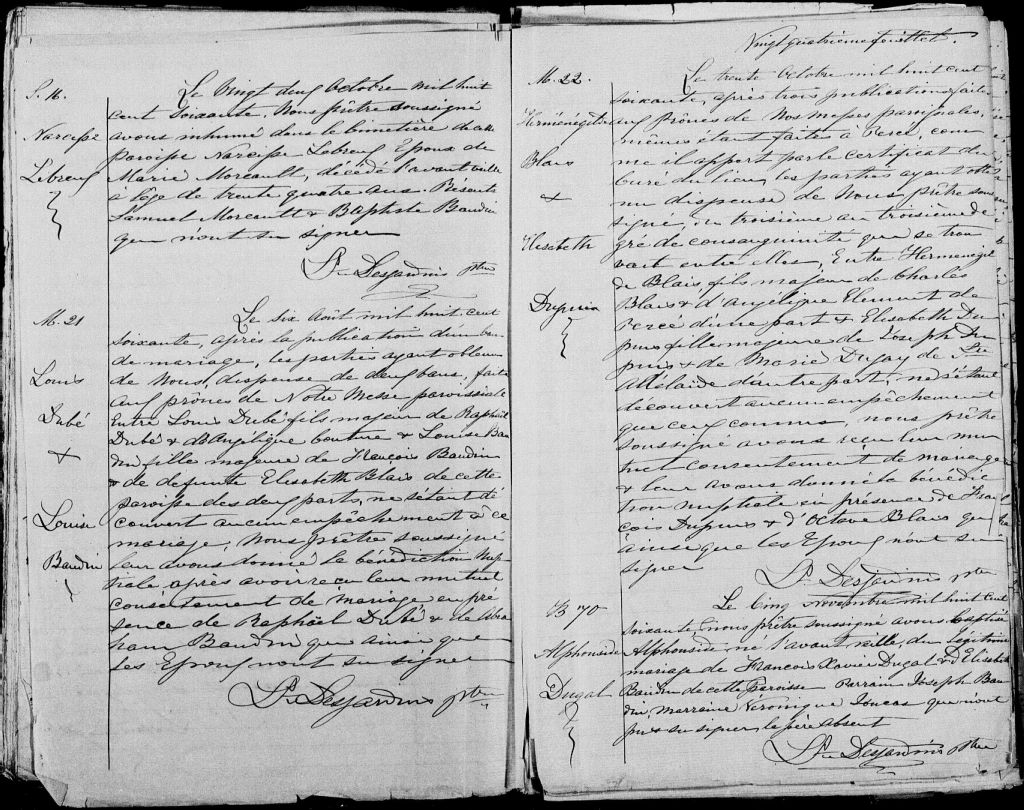 S. 16.
Narcisse
Lebreux
Le vingt deux Octobre mil huit
cent soixante, Nous prêtre soussigné
avons inhumé dans le cimetière de cette
paroisse Narcisse Lebreux Epoux de
Marie Moreault, décédé l'avant veille
à l'age de trente quatre ans. Présents
Samuel Moreault & Baptiste Baudin
qui n'ont su signer
Ls Desjardins ptre
M. 21
Louis
Dubé
+
Louise
Baudin
Le six Août mil huit cent
soixante, après la publication d'un ban
de mariage, les parties ayant obtenu
de Nous, dispense de deux bans, faite
aux prônes de Notre Messe paroissiale
Entre Louis Dubé fils majeur de Raphaël
Dubé & d'Angélique Couture & Louise Bau
din fille majeure de François Baudin
& de defunte Elisabeth Blais de cette
paroisse des deux parts, ne s'étant dé
couvert aucun empêchement à ce
mariage, Nous prêtre soussigné
leur avons donné la bénédiction Nup
tiale après avoir reçu leur mutuel
consentement de mariage en pré
sence de Raphaël Dubé & de Abra
ham Baudin qui ainsi que
les Epoux n'ont su signer
Ls Desjardins ptre
Vingt quatrième feuillet.
M. 22.
Herménégilde
Blais
+
Elisabeth
Dupuis
Le trente Octobre mil huit cent
soixante, après trois publications faites
aux prônes de Nos messes paroissiales,
mêmes étant faites à Percé, com
me il appert par le certificat du
Curé du lieu, les parties ayant obte
nu dispense de Nous prêtre sous
signé, du troisième au troisième de
gré de consanguinité qui se trou
vait entre elles, Entre Hermenegil
de Blais, fils majeur de Charles
Blais & d'Angélique Clement de
Percé d'une part & Elisabeth Du
puis fille majeure de Joseph Du
puis & de Marie Dugay de Ste
Adélaide d'autre part, ne s'étant
découvert aucun empêchement
que ceux connus, nous prêtre
soussigné avons reçu leur mu
tuel consentement de mariage
& leur avons donné la bénédic
tion nuptiale en présence de Fran
çois Dupuis & d'Octave Blais qui
ainsi que les Epoux n'ont su
signer
Ls Desjardins ptre
B 70
Alphonside
Dugal
Le Cinq Novembre mil huit cent
soixante, nous prêtre soussigné avons baptisé
Alphonside, né l'avant veille, du légitime
mariage de François Xavier Dugal & d'Elisabeth
Baudin de cette Paroisse Parrain Joseph Bau
din, Marraine Véronique Joncas qui n'ont
pas su signer, le père absent
Ls Desjardins ptre